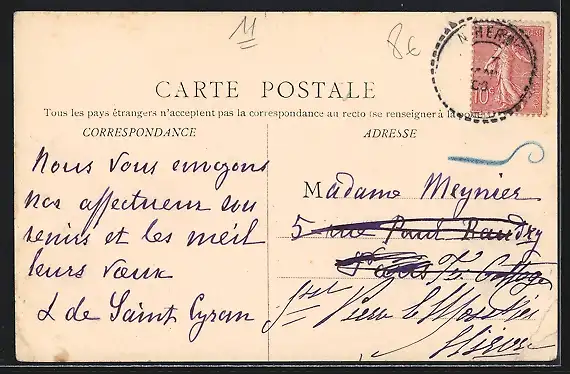 11
8€
CARTE POSTALE
Tous les pays étrangers n'acceptent pas la correspondance au recto (se renseigner à la poste)
CORRESPONDANCE
ADRESSE
10
Nous vous envoyons
nos affectueux sou
venirs et les meil
leurs vœux
L de Saint Cyran
Madame Meynier
5 rue Paul Baudry
Paris
St Pierre le Moustier
Nièvre